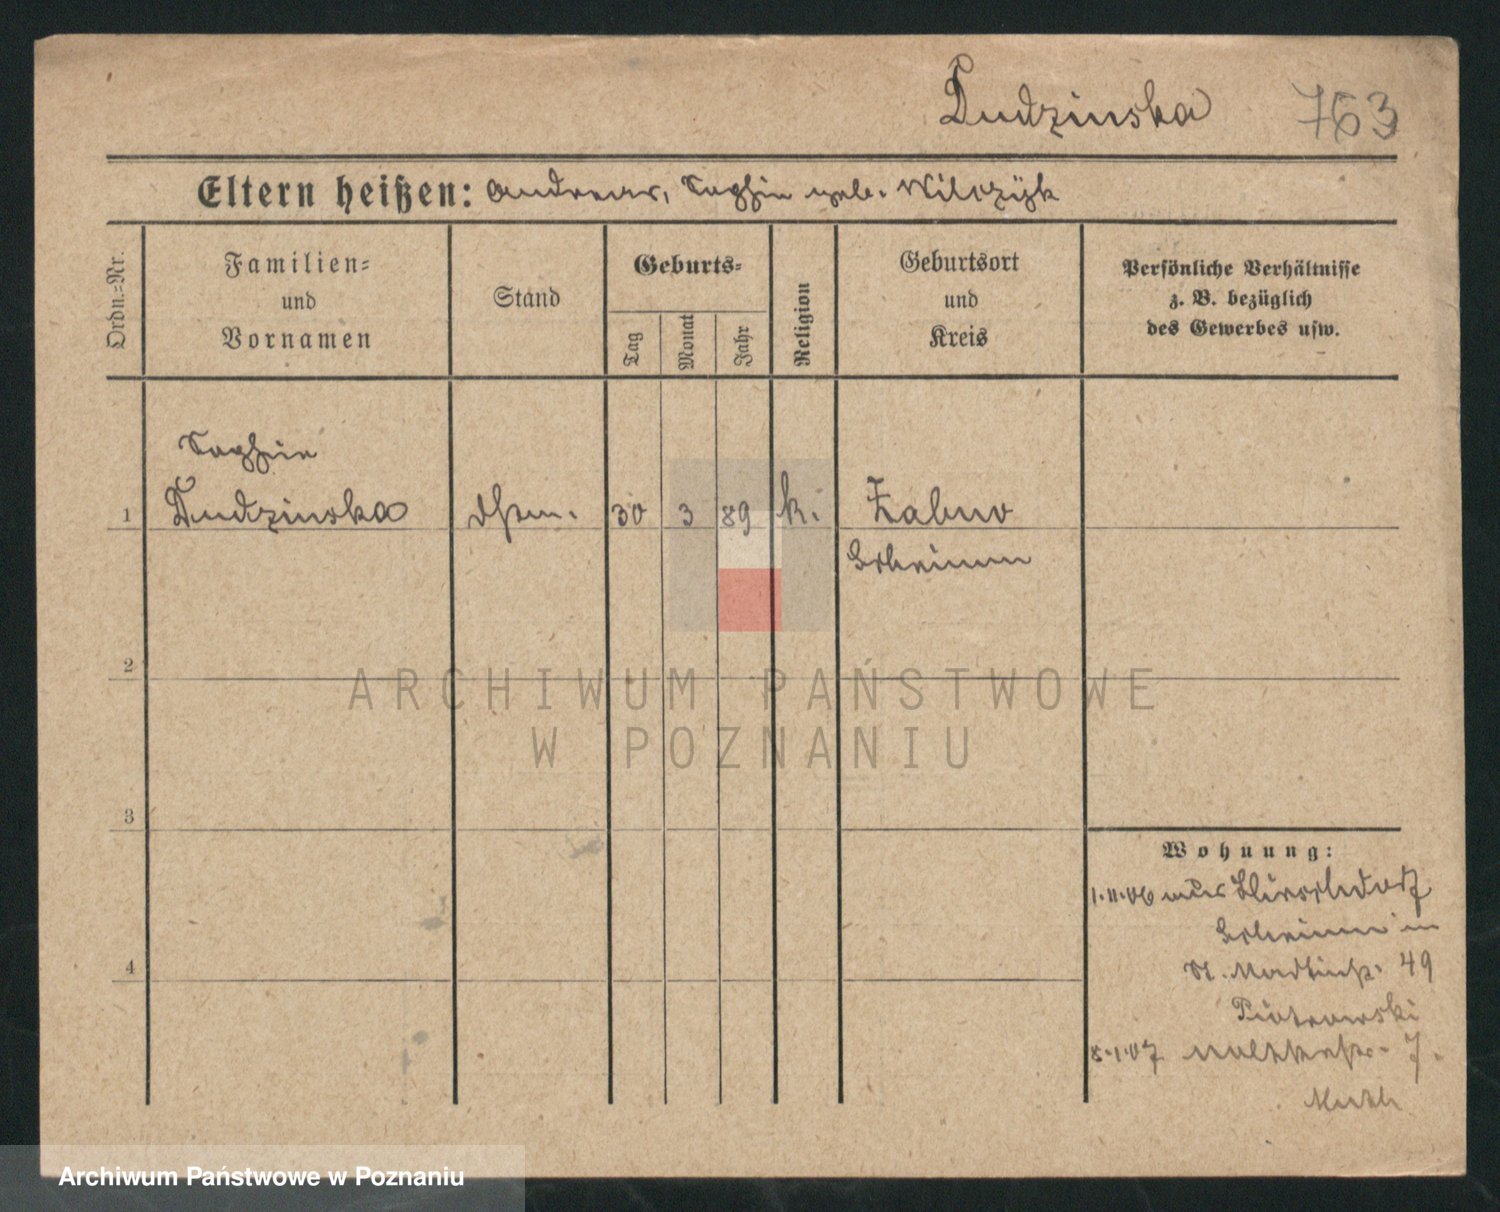 Dudzinska 763
Eltern heißen: Andreas, Sophie geb. Wilczyk
Ordn.-Nr.
Familien-
und
Vornamen
Stand
Geburts-
Tag
Monat
Jahr
Religion
Geburtsort
und
Kreis
Persönliche Verhältnisse
z. B. bezüglich
des Gewerbes usw.
Sophie
1 Dudzinska 30 3 89 k. Zabno
Schrimm
2
ARCHIWUM PAŃSTWOWE
W POZNANIU
3
Wohnung:
1.11.06 aus
Schrimm in
4 St. Martinstr. 49
Piotrowski
8.1.07 7.
Archiwum Państwowe w Poznaniu